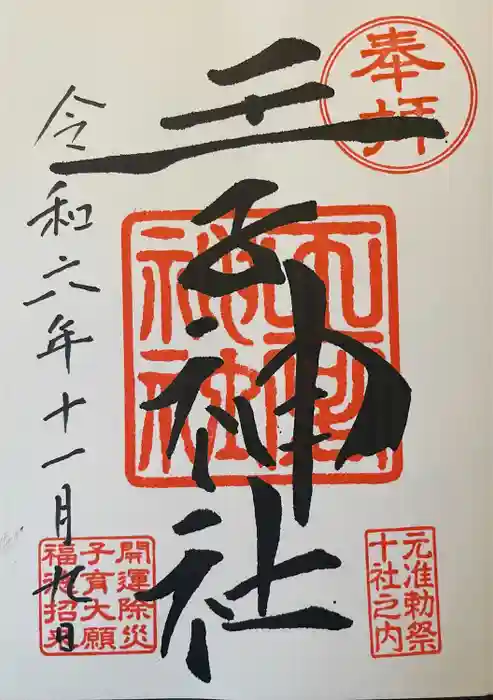 奉拝
王子神社
神社
元准勅祭
十社之内
令和六年十一月九日
開運除災
子育大願
福徳招来